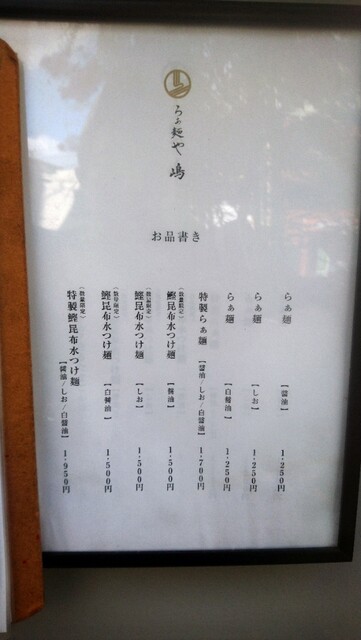 らぁ麺や 嶋
お品書き
らぁ麺 【醤油】 1,250円
らぁ麺 【しお】 1,250円
らぁ麺 【白醤油】 1,250円
特製らぁ麺 【醤油/しお/白醤油】 1,700円
(数量限定) 鰹昆布水つけ麺 【醤油】 1,500円
(数量限定) 鰹昆布水つけ麺 【しお】 1,500円
(数量限定) 鰹昆布水つけ麺 【白醤油】 1,500円
(数量限定) 特製鰹昆布水つけ麺 【醤油/しお/白醤油】 1,950円